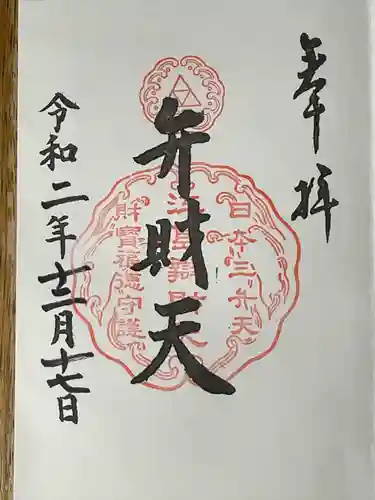 奉拝
弁財天
令和二年十二月十七日
日本三弁天
江島辨財天
財寶福徳守護